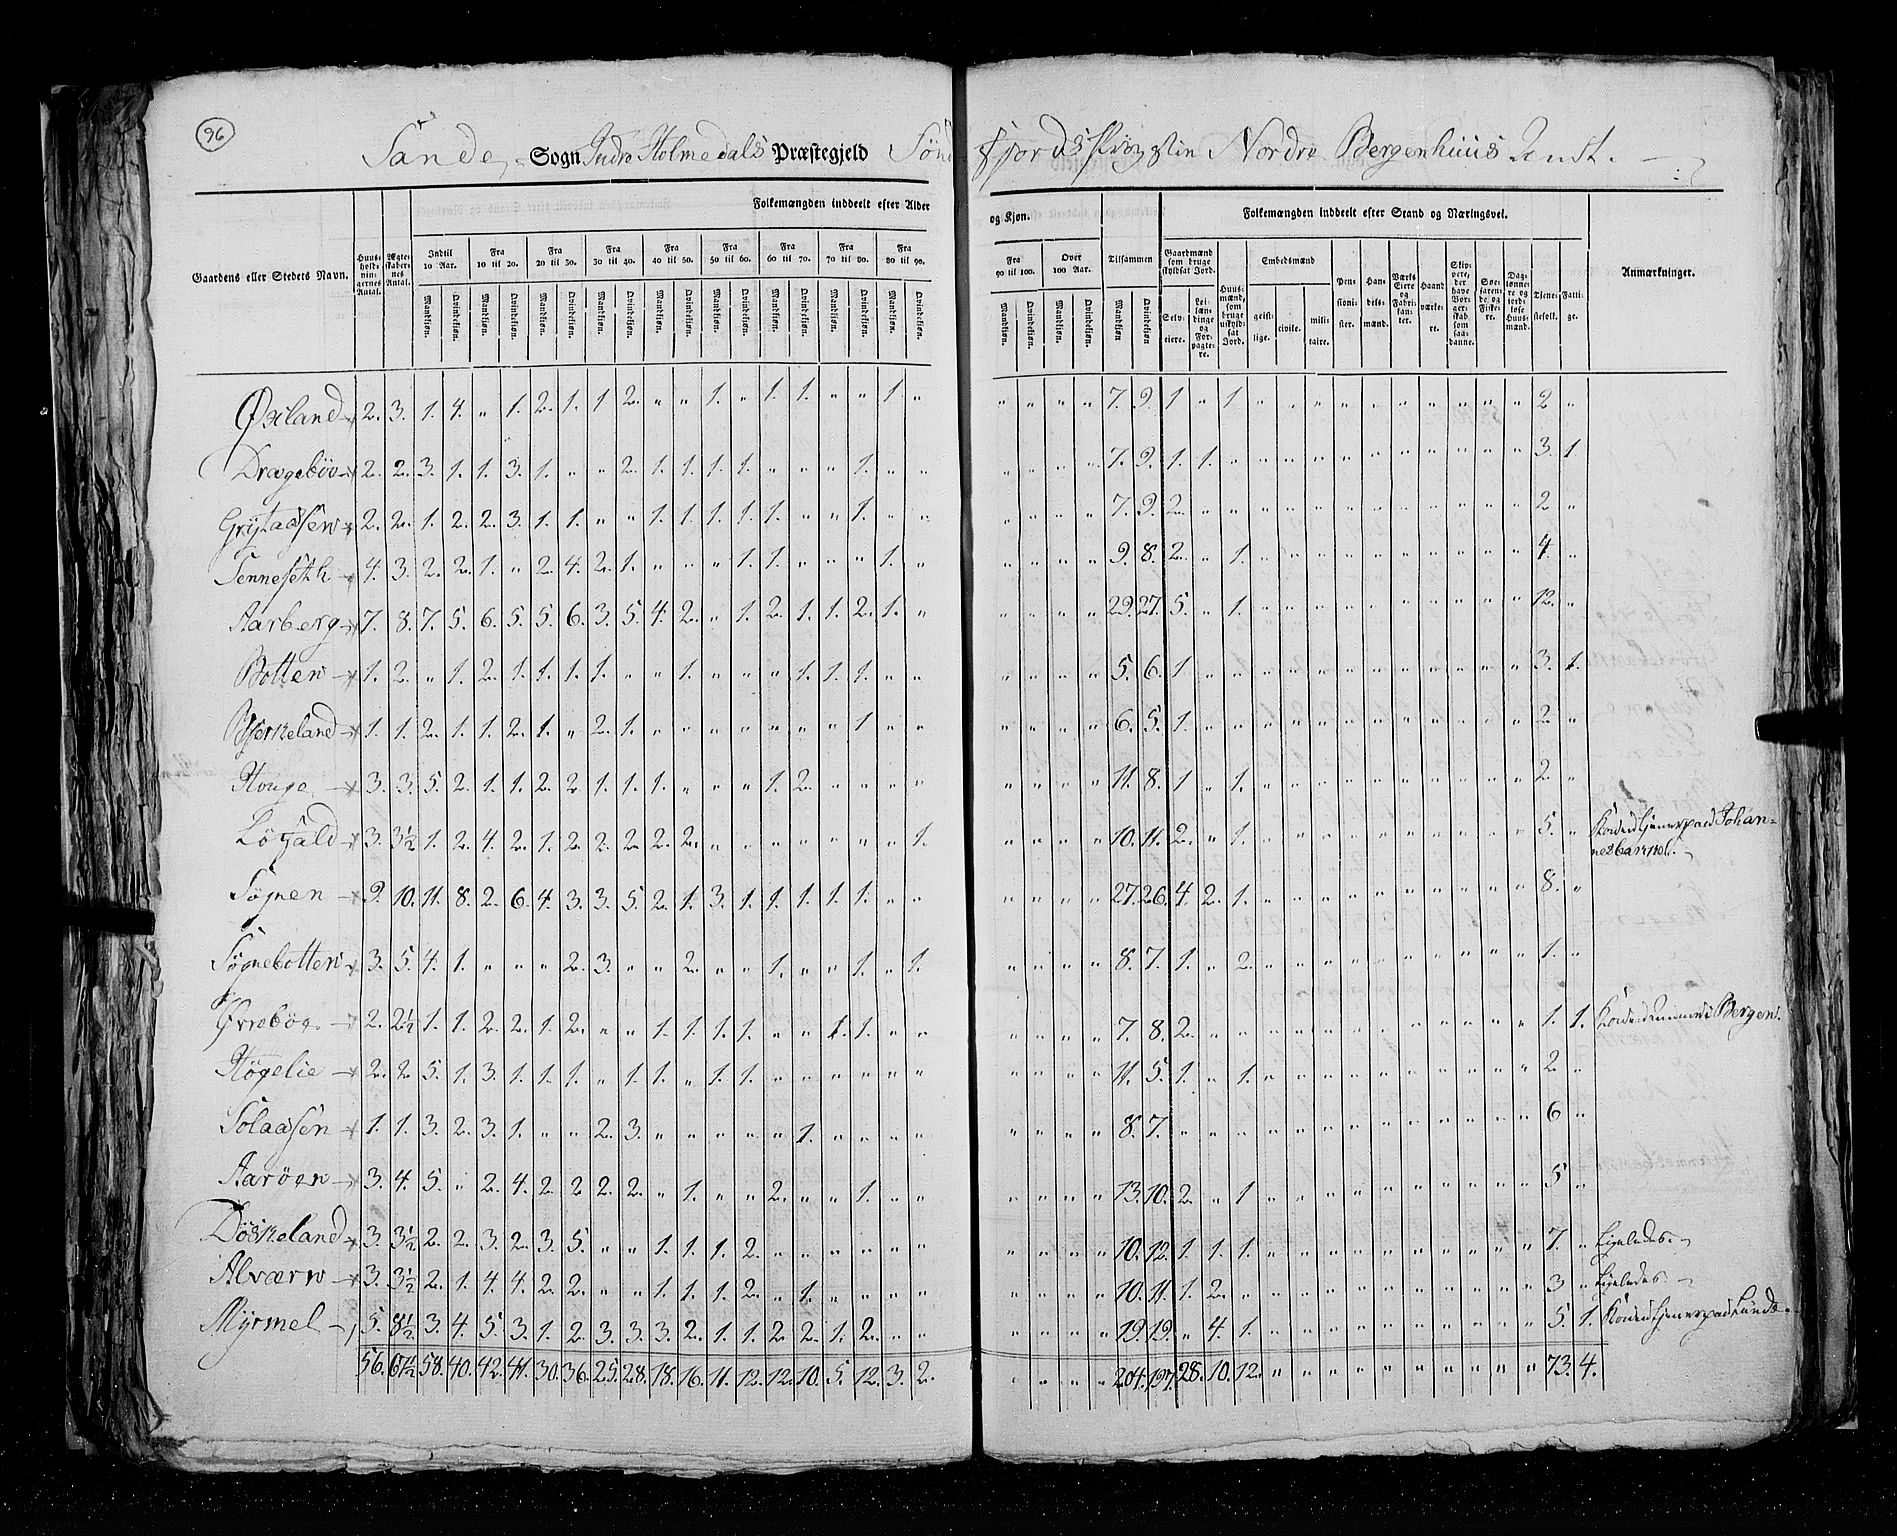 96
Sande Sogn Indre Holmedals Præstegjeld Sönd fjords Provstie Nordre Bergenhuus Amt.
Folkemængden inddeelt efter Alder og Kjøn. Folkemængden inddeelt efter Stand og Næringsvei.
Gaardens eller Stedets Navn. Huus-holdnin-gernes Antal. Ægte-skaber-nes Antal. Indtil 10 Aar. Fra 10 til 20. Fra 20 til 30. Fra 30 til 40. Fra 40 til 50. Fra 50 til 60. Fra 60 til 70. Fra 70 til 80. Fra 80 til 90. Fra 90 til 100. Over 100 Aar. Tilsammen Gaardmænd som bruge skyldsat Jord. Huus-mænd, som bruge uskyld-sat Jord. Embedsmænd Pen-sioni-ster. Han-dels-mænd. Værks Eiere og Fabri-kan-ter. Haand værke-re. Skip-pere, der have Bor-ger-skab som saa-danne. Søe-farende og Fiske-re. Dag-lønne-re og jord-løse Huus-mænd. Tjene-stefolk. Fatti-ge. Anmærkninger.
Mandkjøn. Qvindekjøn. Mandkjøn. Qvindekjøn. Mandkjøn. Qvindekjøn. Mandkjøn. Qvindekjøn. Mandkjøn. Qvindekjøn. Mandkjøn. Qvindekjøn. Mandkjøn. Qvindekjøn. Mandkjøn. Qvindekjøn. Mandkjøn. Qvindekjøn. Mandkjøn. Qvindekjøn. Mandkjøn. Qvindekjøn. Mandkjøn Qvindekjøn Selv-eiere. Lei-læn-dinge og For-pagte-re. geist-lige. civile. mili-taire.
Øxland 2. 3. 1. 4. " 1. 2. 1. 1 2. " " 1. " 1. 1. " " 1. " " " " " 7. 9. 1 " 1 " " " " " " " " " " 2 "
Drægebøe 2. 2. 3. 1. 1. 3. 1. " " 2. 1. 1. 1. 1. " " " 1. " " " " " " 7. 9. 1. 1. " " " " " " " " " " " 3. 1
Grytaasen 2. 2. 1. 2. 2. 3. 1. 1. " " 1. 1. 1. 1. 1. " " 1. " " " " " " 7. 9. 2. " " " " " " " " " " " " 2 "
Tenneseth 4. 3. 2. 2. 1. " 2. 4. 2. 1. " " " 1. 1. " " " 1. " " " " " 9. 8. 2. " 1. " " " " " " " " " " 4. "
Aarberg 7. 8. 7. 5. 6. 5. 5. 6. 3. 5. 4. 2. " 1. 2. 1. 1. 2. 1. " " " " " 29. 27. 5. " 1. " " " " " " " " " " 12. "
Botten 1. 2. " 1. 2. 1. 1. 1. 1. " " 1. " " " 1. 1. 1. " " " " " " 5. 6. 1 " " " " " " " " " " " " 3. 1.
Bjerkeland 1. 1. 2. 1. 1. 2. 1. " 2. 1. " " " " " " " 1 " " " " " " 6. 5. 1. " " " " " " " " " " " " 2. "
Houge 3. 3. 5. 2. 1. 1. 2. 2 1. 1. 1. " " " 1. 2. " " " " " " " " 11. 8. 1 " 1. " " " " " " " " " " 2. "
Løfald 3. 3½ 1. 2. 4. 2. 1. 2. 2. 2. 2. 2. " " " " " " " 1. " " " " 10. 11. 2. " 1. " " " " " " " " " " 5. " Konen tjener paa Johan-
nesbarkel.
Sögnen 9. 10. 11. 8. 2. 6. 4. 3. 3. 5. 2. 1. 3. 1. 1. 1. 1. 1. " " " " " " 27. 26. 4. 2. 1. " " " " " " " " " " 8. "
Sögnebotten 3. 5. 4. 1. " " " 2. 3. " " 2. " " 1. " " 1. " 1. " " " " 8. 7. 1. " 2. " " " " " " " " " " 1. "
Yttrebøe 2. 2½ 1. 1. 2. 2. 1. 2. " " 1. 1. 1. 1. " " 1. 1. " " " " " " 7. 8. 2. " " " " " " " " " " " " 1. 1. Bergen.
Högelie 2. 2 5. 1. 3. 1. 1. 1. " 1. 1. " 1. 1. " " " " " " " " " " 11. 5. 1. " 1. " " " " " " " " " " 2 "
Solaasen 1. 1. 3. 2. 3. 1. " " 2. 3. " " " " " 1. " " " " " " " " 8. 7. " " " " " " " " " " " " " 6 "
Aaröen 3. 4. 5. " 2. 4. 2. 2. 2. 2. " 1. " " 2. " " 1. " " " " " " 13. 10. 2. " 1 " " " " " " " " " " 5 "
Döskeland 3. 3½ 2. 2. 3. 2. 3. 5. " " 1. 1. 1. 2. " " " " " " " " " " 10. 12. 1. 1. 1. " " " " " " " " " " 7. " Ligeledes.
Alværn 3. 3½ 2. 1. 4. 4. 2. 2. " " 1. 1. 1. 2. " 1. " " " " " " " " 10. 11. 1. 2. " " " " " " " " " " " 3 " Ligeledes
Myrmel 5. 8½ 3. 4. 5. 3. 1. 2. 3. 3. 3. 2. 1. 1. 2. 2. 1. 2. " " " " " " 19. 19. " 4. 1. " " " " " " " " " " 5. 1. Konen tjener paa Lunde
56. 67½ 58. 40. 42. 41. 30. 36. 25. 28. 18. 16. 11. 12. 12. 10. 5. 12. 3. 2. " " " " 204. 197. 28. 10. 12. " " " " " " " " " " 73. 4.